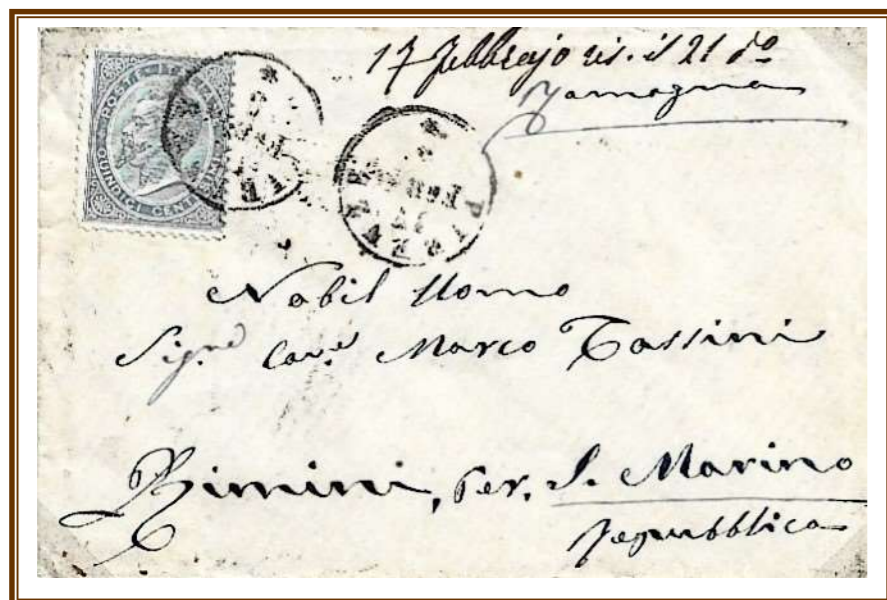 17 febbrajo ris. il 21 do
POSTE ITALIANE
QUINDICI CENT
Nobil Uomo
Sig.re Cav.e Marco Tassini
Rimini, per. S. Marino
repubblica